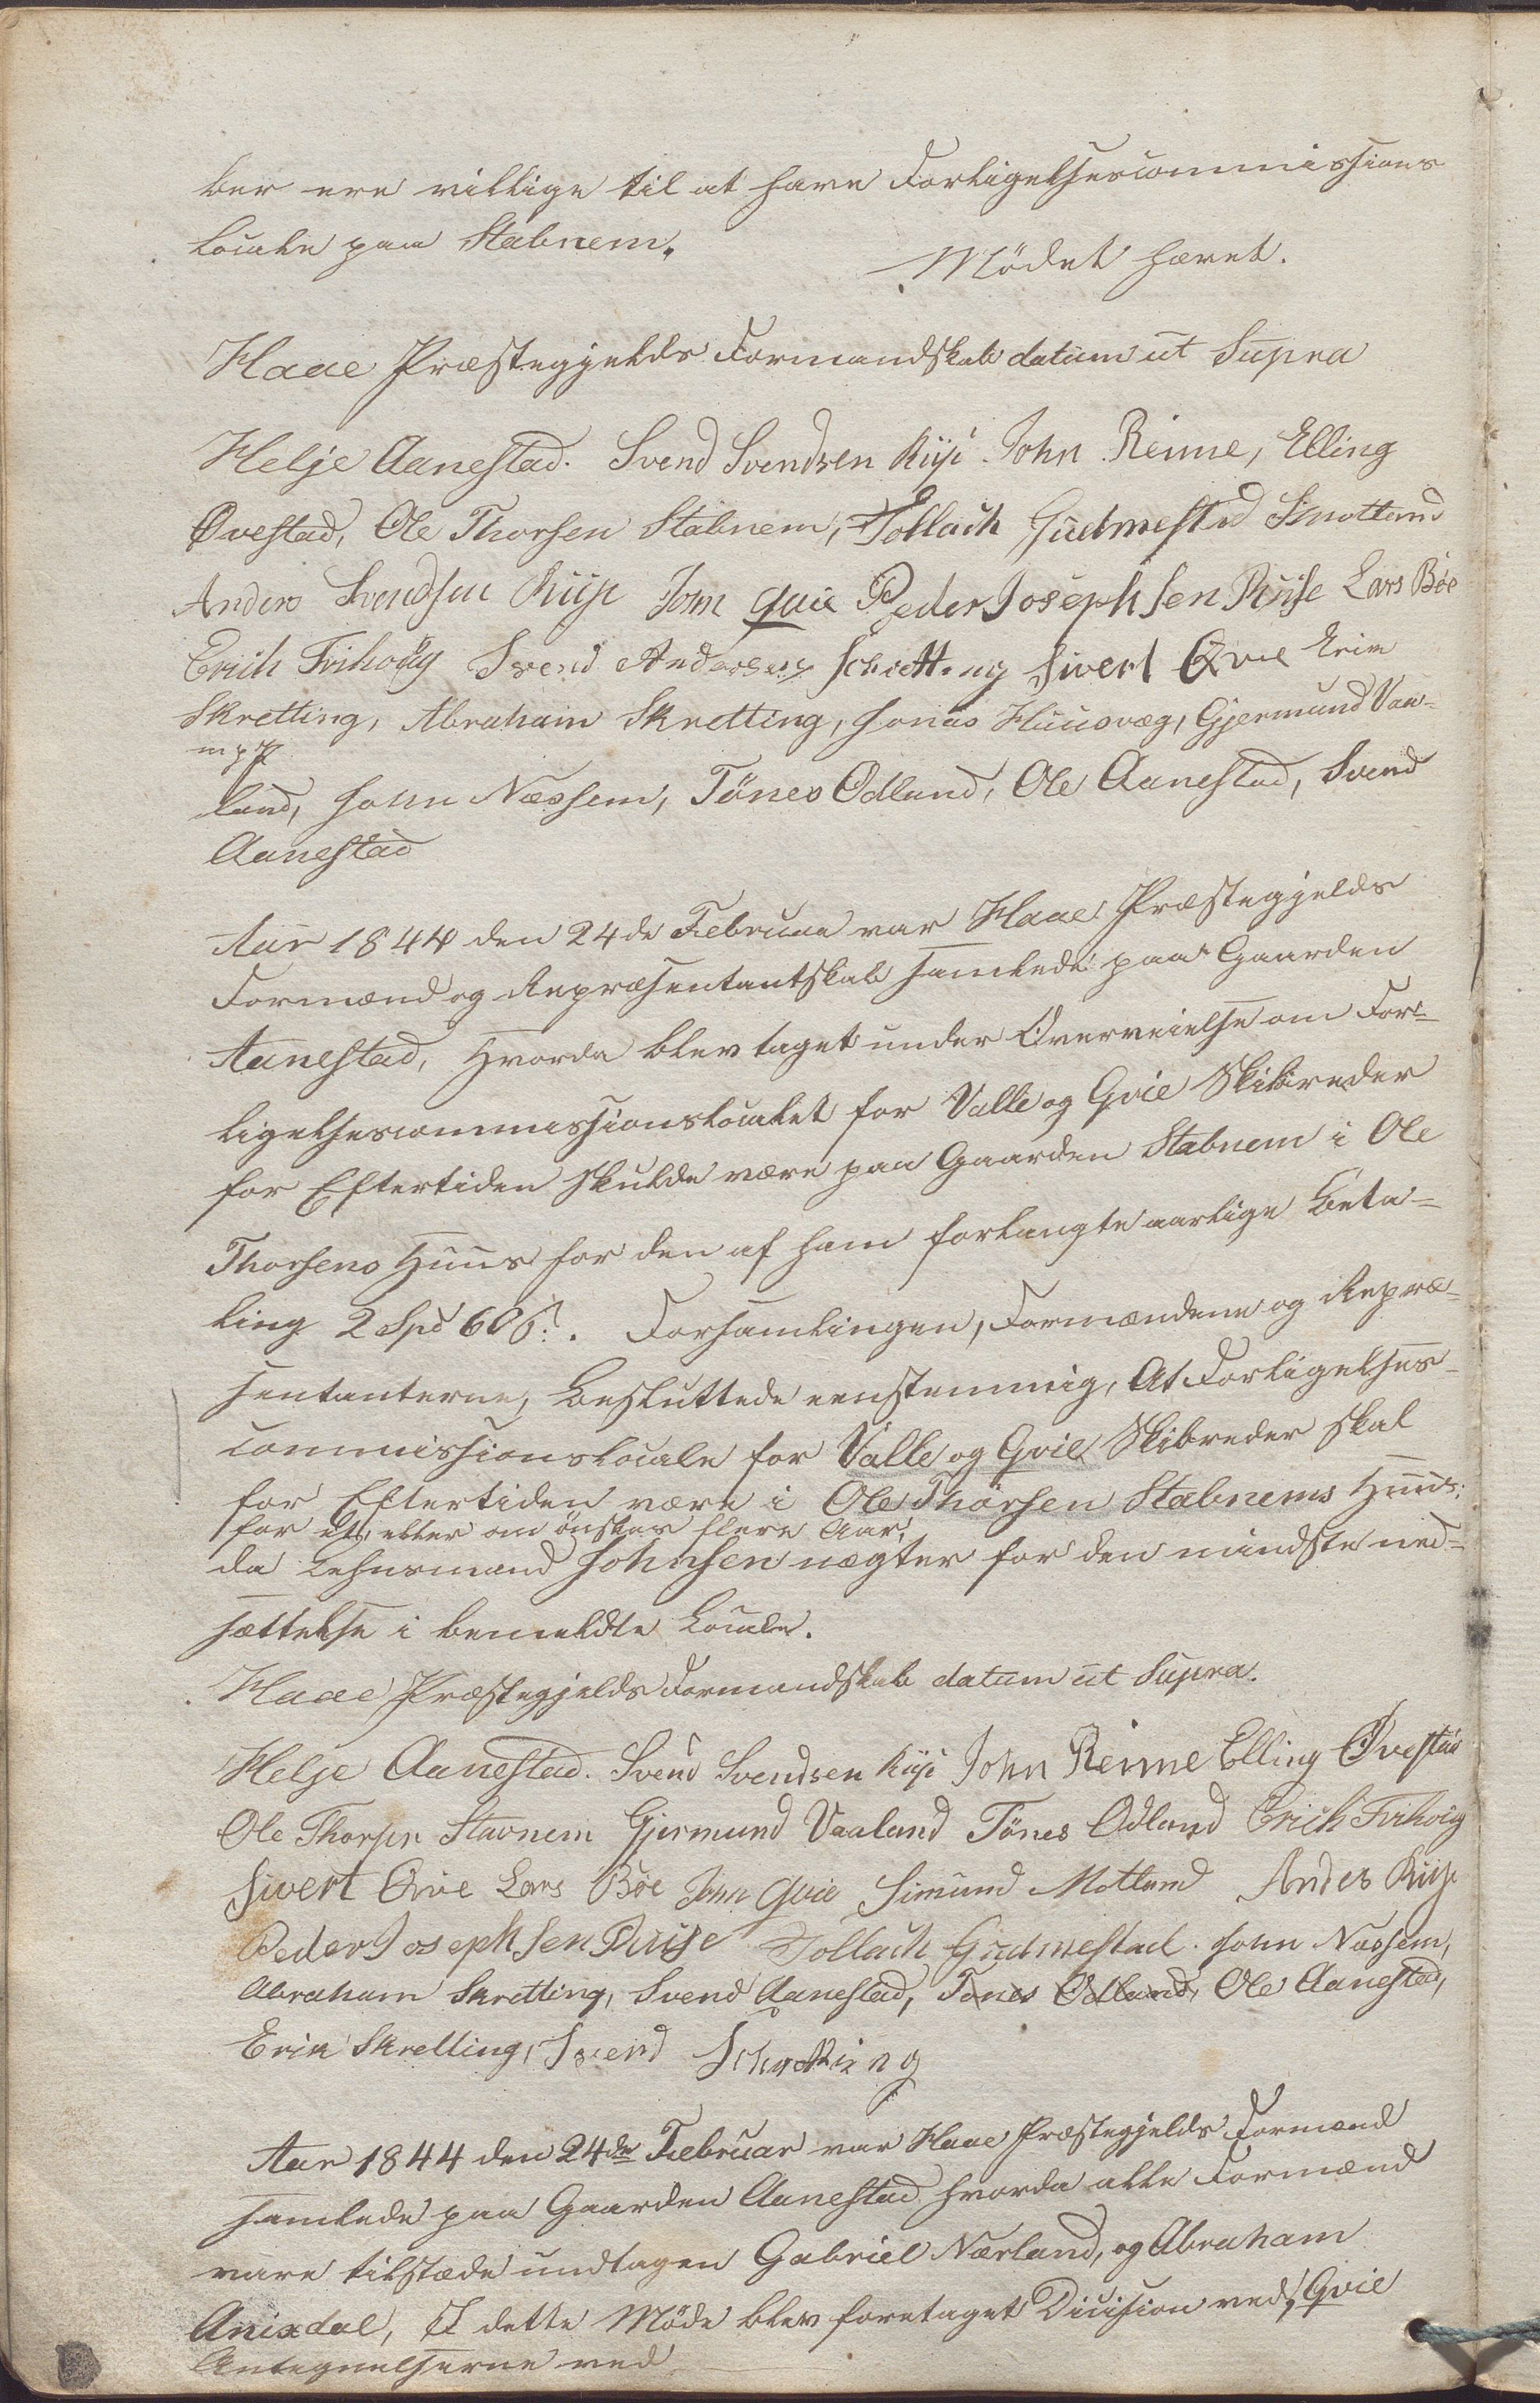 ber ere villige til at have Forligelsescommissions
Locale paa Stabnem.
Mödet hævet.
Haae Præstegjelds Formandskab datum ut Supra
Helje Aanestad. Svend Svendsen Riise John Reime, Elling
Øvestad, Ole Thorsen Stabnem, Tollach Gudmestad Simotland
Anders Svendsen Riise John Qvie Peder Josephsen Ruise Lars Böe
Erich Tvihoug Svend Andersen Schretting Sivert Qvie Erik
Skretting, Abraham Skretting, Jonas Huusvæg, Gjermund Vaa-
mpp
land, John Næssem, Tönes Odland, Ole Aanestad, Svend
Aanestad
Aar 1844 den 24de Februar var Haae Præstegjelds
Formænd og Repræsentantskab samlede paa Gaarden
Aanestad, Hvorda blev taget under Overveielse om For-
ligelsescommissionslocalet for Valle og Qvie Skibreder
for Eftertiden skulde være paa Gaarden Stabnem i Ole
Thorsens Huus for den af ham forlangte aarlige Beta-
ling 2 Spd 60 ß. Forsamlingen, Formændene og Repræ-
sentanterne, Besluttede eenstemmig, At Forligelses-
commissionslocale for Valle og Qvie Skibreder skal
for Eftertiden være i Ole Thorsen Stabnems Huus;
for et, eller om önskes flere Aar,
da Lehnsmand Johnsen nægter for den mindste ned-
sættelse i bemeldte Locale.
Haae Præstegjelds Formandskab datum ut Supra.
Helje Aanestad. Svend Svendsen Riise John Reime Elling Øvestad
Ole Thorsen Stavnem Gjermund Vaaland Tönes Odland Erich Tvihoug
Sivert Qvie Lars Böe John Qvie Simund Motland Anders Riise
Peder Josephsen Ruise Tollach Gudmestad. John Næssem,
Abraham Skretting, Svend Aanestad, Tönes Odland, Ole Aanestad,
Erik Skretting, Svend Schretting
Aar 1844 den 24de Februar var Haae Præstegjelds Formænd
samlede paa Gaarden Aanestad hvorda alle Formænd
vare tilstæde undtagen Gabriel Nærland, og Abraham
Anixdal, I dette Möde blev foretaget Dicision ved, Qvie
Antegnelserne ved